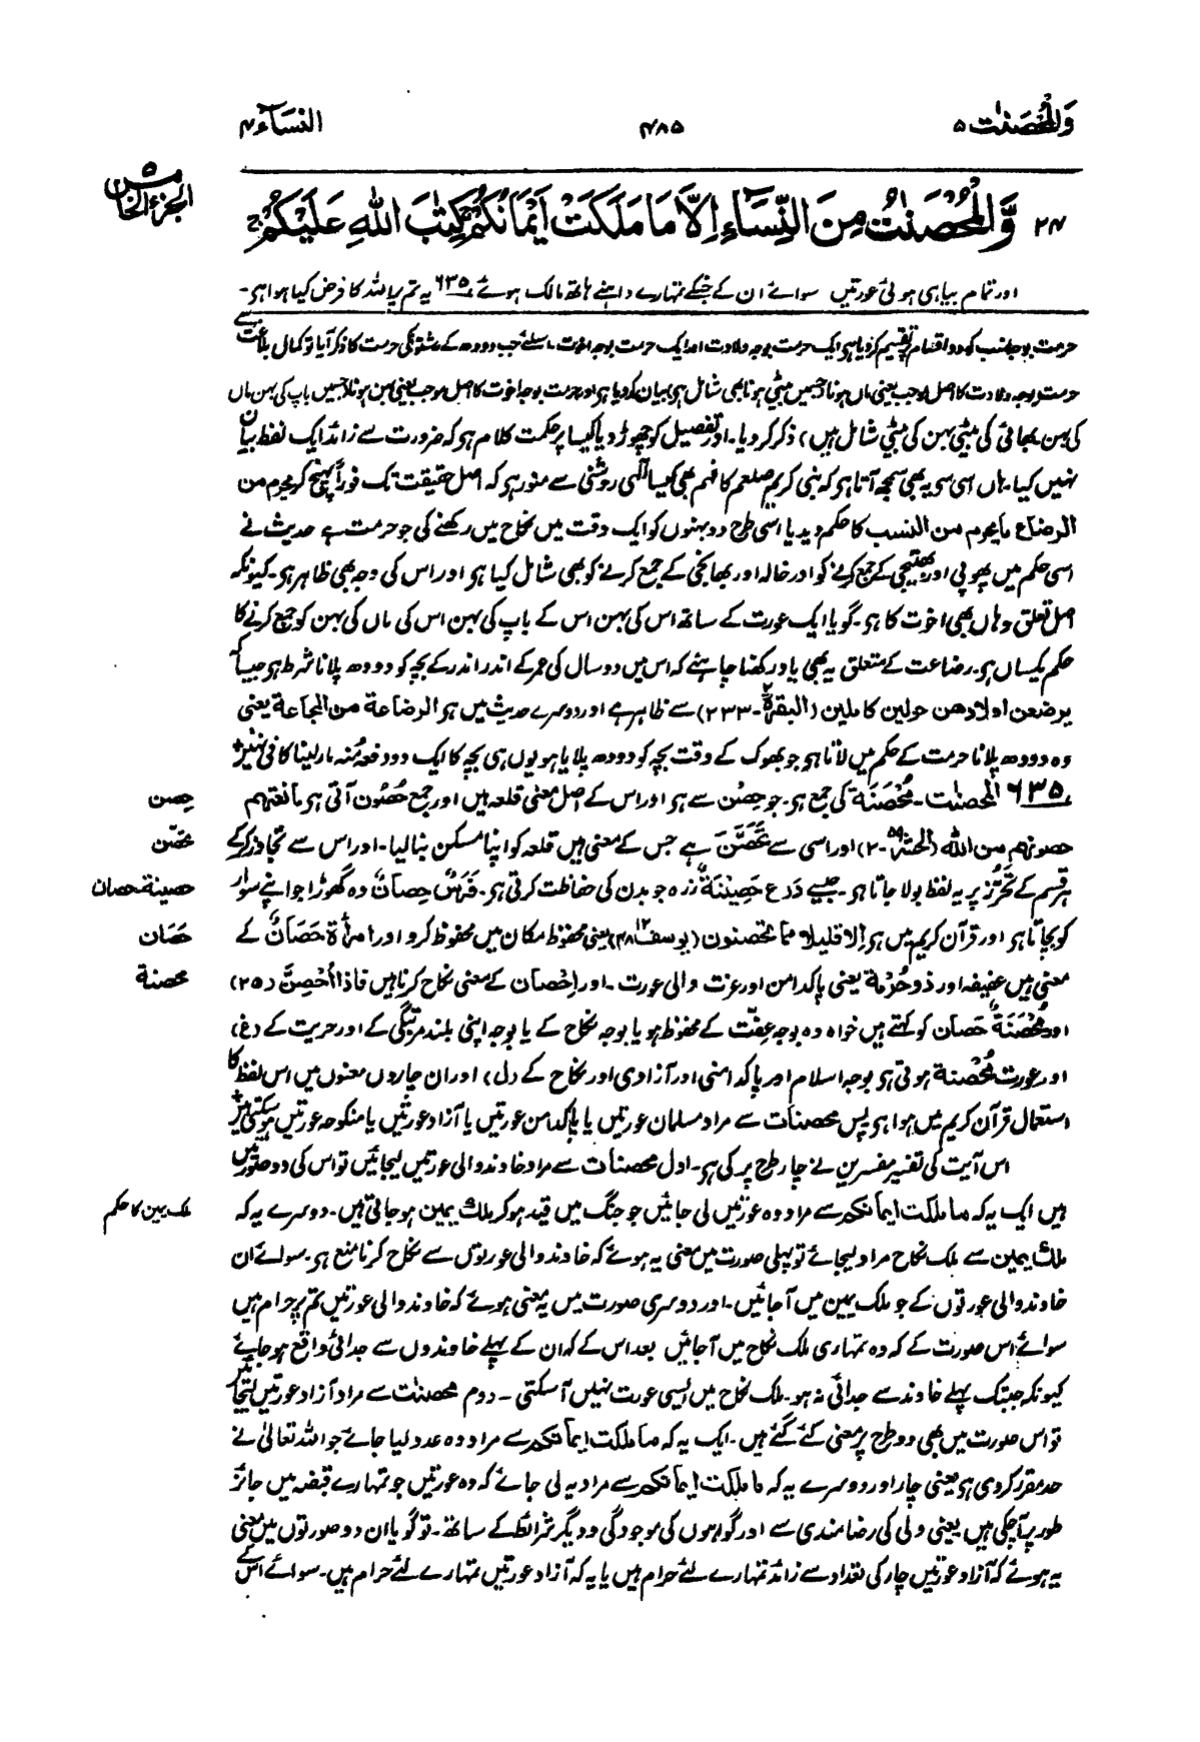 وَالْمُحْصَنٰت ۵
۴۸۵
النسَآء ۴
الجزء الخامس ۵
۲۴ وَّالْمُحْصَنٰتُ مِنَ النِّسَآءِ اِلَّا مَا مَلَكَتْ اَيْمَانُكُمْ كِتٰبَ اللّٰهِ عَلَيْكُمْ
اور تمام بیاہی ہوئی عورتیں سوائے ان کے جنکے تمہارے داہنے ہاتھ مالک ہوئے ۶۳۵ یہ تم پر اللہ کا فرض کیا ہوا ہی۔
حرمت بوجہ نسب کو دو اقسام پر تقسیم کر دیا ہی ایک حرمت بوجہ ولادت اور ایک حرمت بوجہ اخوت۔ اسلئے جب دودھ کے رشتونکی حرمت کا ذکر آیا تو کمال بلاغت سے
حرمت بوجہ ولادت کا اصل موجب یعنی ماں ہونا جسمیں بیٹی ہونا بھی شامل ہی بیان کر دیا ہی اور حرمت بوجہ اخوت کا اصل موجب یعنی بہن ہونا (جسمیں باپ کی بہن ماں
کی بہن بھائی کی بیٹی بہن کی بیٹی شامل ہیں) ذکر کر دیا۔ اور تفصیل کو چھوڑ دیا کیسا پر حکمت کلام ہو کہ ضرورت سے زائد ایک لفظ بیان
نہیں کیا۔ ہاں اسی سے یہ بھی سمجھ آتا ہو کہ نبی کریم صلعم کا فہم بھی کیسا الٰہی روشنی سے منور ہو کہ اصل حقیقت تک فوراً پہنچ کر یحرم من
الرضاع ما یحرم من النسب کا حکم دیدیا اسی طرح دو بہنوں کو ایک وقت میں نکاح میں رکھنے کی جو حرمت ہے حدیث نے
اسی حکم میں پھوپی اور بھتیجی کے جمع کرنے کو اور خالہ اور بھانجی کے جمع کرنے کو بھی شامل کیا ہو اور اس کی وجہ بھی ظاہر ہو۔ کیونکہ
اصل تعلق وہاں بھی اخوت کا ہو۔ گویا ایک عورت کے ساتھ اس کی بہن اس کے باپ کی بہن اس کی ماں کی بہن کو جمع کرنے کا
حکم یکساں ہو۔ رضاعت کے متعلق یہ بھی یاد رکھنا چاہئے کہ اس میں دو سال کی عمر کے اندر اندر کے بچہ کو دودھ پلانا شرط ہو جیسا کہ
یرضعن اولادھن حولین کاملین (البقرۃ ۲-۲۳۳) سے ظاہر ہے اور دوسرے حدیث میں ہو الرضاعة من المجاعة یعنی
وہ دودھ پلانا حرمت کے حکم میں لاتا ہو جو بھوک کے وقت بچہ کو دودھ پلایا ہو یوں ہی بچہ کا ایک دو دفعہ مُنہ مار لینا کافی نہیں +
۶۳۵ المحصنٰت۔ مُحْصَنَة کی جمع ہو۔ جو حِصْن سے ہو اور اس کے اصل معنی قلعہ ہیں اور جمع حُصُون آتی ہو مانعتہم
حصن
حصونہم من اللہ (الحشر ۵۹-۲) اور اسی سے تَحَصَّنَ ہے جس کے معنی ہیں قلعہ کو اپنا مسکن بنا لیا۔ اور اس سے تجاوز کر کے
تحصّن
ہر قسم کے تَحَرُّز پر یہ لفظ بولا جاتا ہو۔ جیسے دَرْع حَصِیْنَة زرہ جو بدن کی حفاظت کرتی ہو۔ فَرَسٌ حِصانٌ وہ گھوڑا جو اپنے سوار
حصینة حصان
کو بچاتا ہو اور قرآن کریم میں ہو اِلا قلیلا مما تحصنون (یوسف ۱۲-۴۸) یعنی محفوظ مکان میں محفوظ کرو اور امرأة حَصَانٌ کے
حَصَان
معنی ہیں عفیفہ اور ذو حُرْمة یعنی پاکدامن اور عزت والی عورت۔ اور اِحْصان کے معنی نکاح کرنا ہیں فاذا اُحْصِنَّ (۲۵)
محصنة
اور مُحْصَنَةٌ حَصان کو کہتے ہیں خواہ وہ بوجہ عِفّت کے محفوظ ہو یا بوجہ نکاح کے یا بوجہ اپنی بلند مرتبگی کے اور حریت کے (غ)
اور عورت مُحْصنة ہوتی ہو بوجہ اسلام اور پاکدامنی اور آزادی اور نکاح کے (ل) اور ان چاروں معنوں میں اس لفظ کا
استعمال قرآن کریم میں ہوا ہو پس محصنات سے مراد مسلمان عورتیں یا پاکدامن عورتیں یا آزاد عورتیں یا منکوحہ عورتیں ہو سکتی ہیں +
اس آیت کی تفسیر مفسرین نے چار طرح پر کی ہو۔ اول محصنات سے مراد خاوند والی عورتیں لیجائیں تو اس کی دو صورتیں
ہیں ایک یہ کہ ما ملکت ایمانکم سے مراد وہ عورتیں لی جائیں جو جنگ میں قید ہو کر ملک یمین ہو جاتی ہیں۔ دوسرے یہ کہ
ملک یمین کا حکم
ملک یمین سے ملک نکاح مراد لیجائے تو پہلی صورت میں معنی یہ ہوئے کہ خاوند والی عورتوں سے نکاح کرنا منع ہو۔ سوائے ان
خاوند والی عورتوں کے جو ملک یمین میں آجائیں۔ اور دوسری صورت میں یہ معنی ہوئے کہ خاوند والی عورتیں تم پر حرام ہیں
سوائے اس صورت کے کہ وہ تمہاری ملک نکاح میں آجائیں بعد اس کے کہ ان کے پہلے خاوندوں سے جدائی واقع ہو جائے
کیونکہ جبتک پہلے خاوند سے جدائی نہ ہو۔ ملک نکاح میں ایسی عورت نہیں آسکتی۔ دوم محصنٰت سے مراد آزاد عورتیں لیجائیں
تو اس صورت میں بھی دو طرح پر معنی کئے گئے ہیں۔ ایک یہ کہ ما ملکت ایمانکم سے مراد وہ عدد لیا جائے جو اللہ تعالیٰ نے
حد مقرر کر دی ہو یعنی چار اور دوسرے یہ کہ ما ملکت ایمانکم سے مراد یہ لی جائے کہ وہ عورتیں جو تمہارے قبضہ میں جائز
طور پر آچکی ہیں یعنی ولی کی رضامندی سے اور گواہوں کی موجودگی و دیگر شرائط کے ساتھ۔ تو گویا ان دو صورتوں میں معنی
یہ ہوئے کہ آزاد عورتیں چار کی تعداد سے زائد تمہارے لئے حرام ہیں یا یہ کہ آزاد عورتیں تمہارے لئے حرام ہیں۔ سوائے اس کے